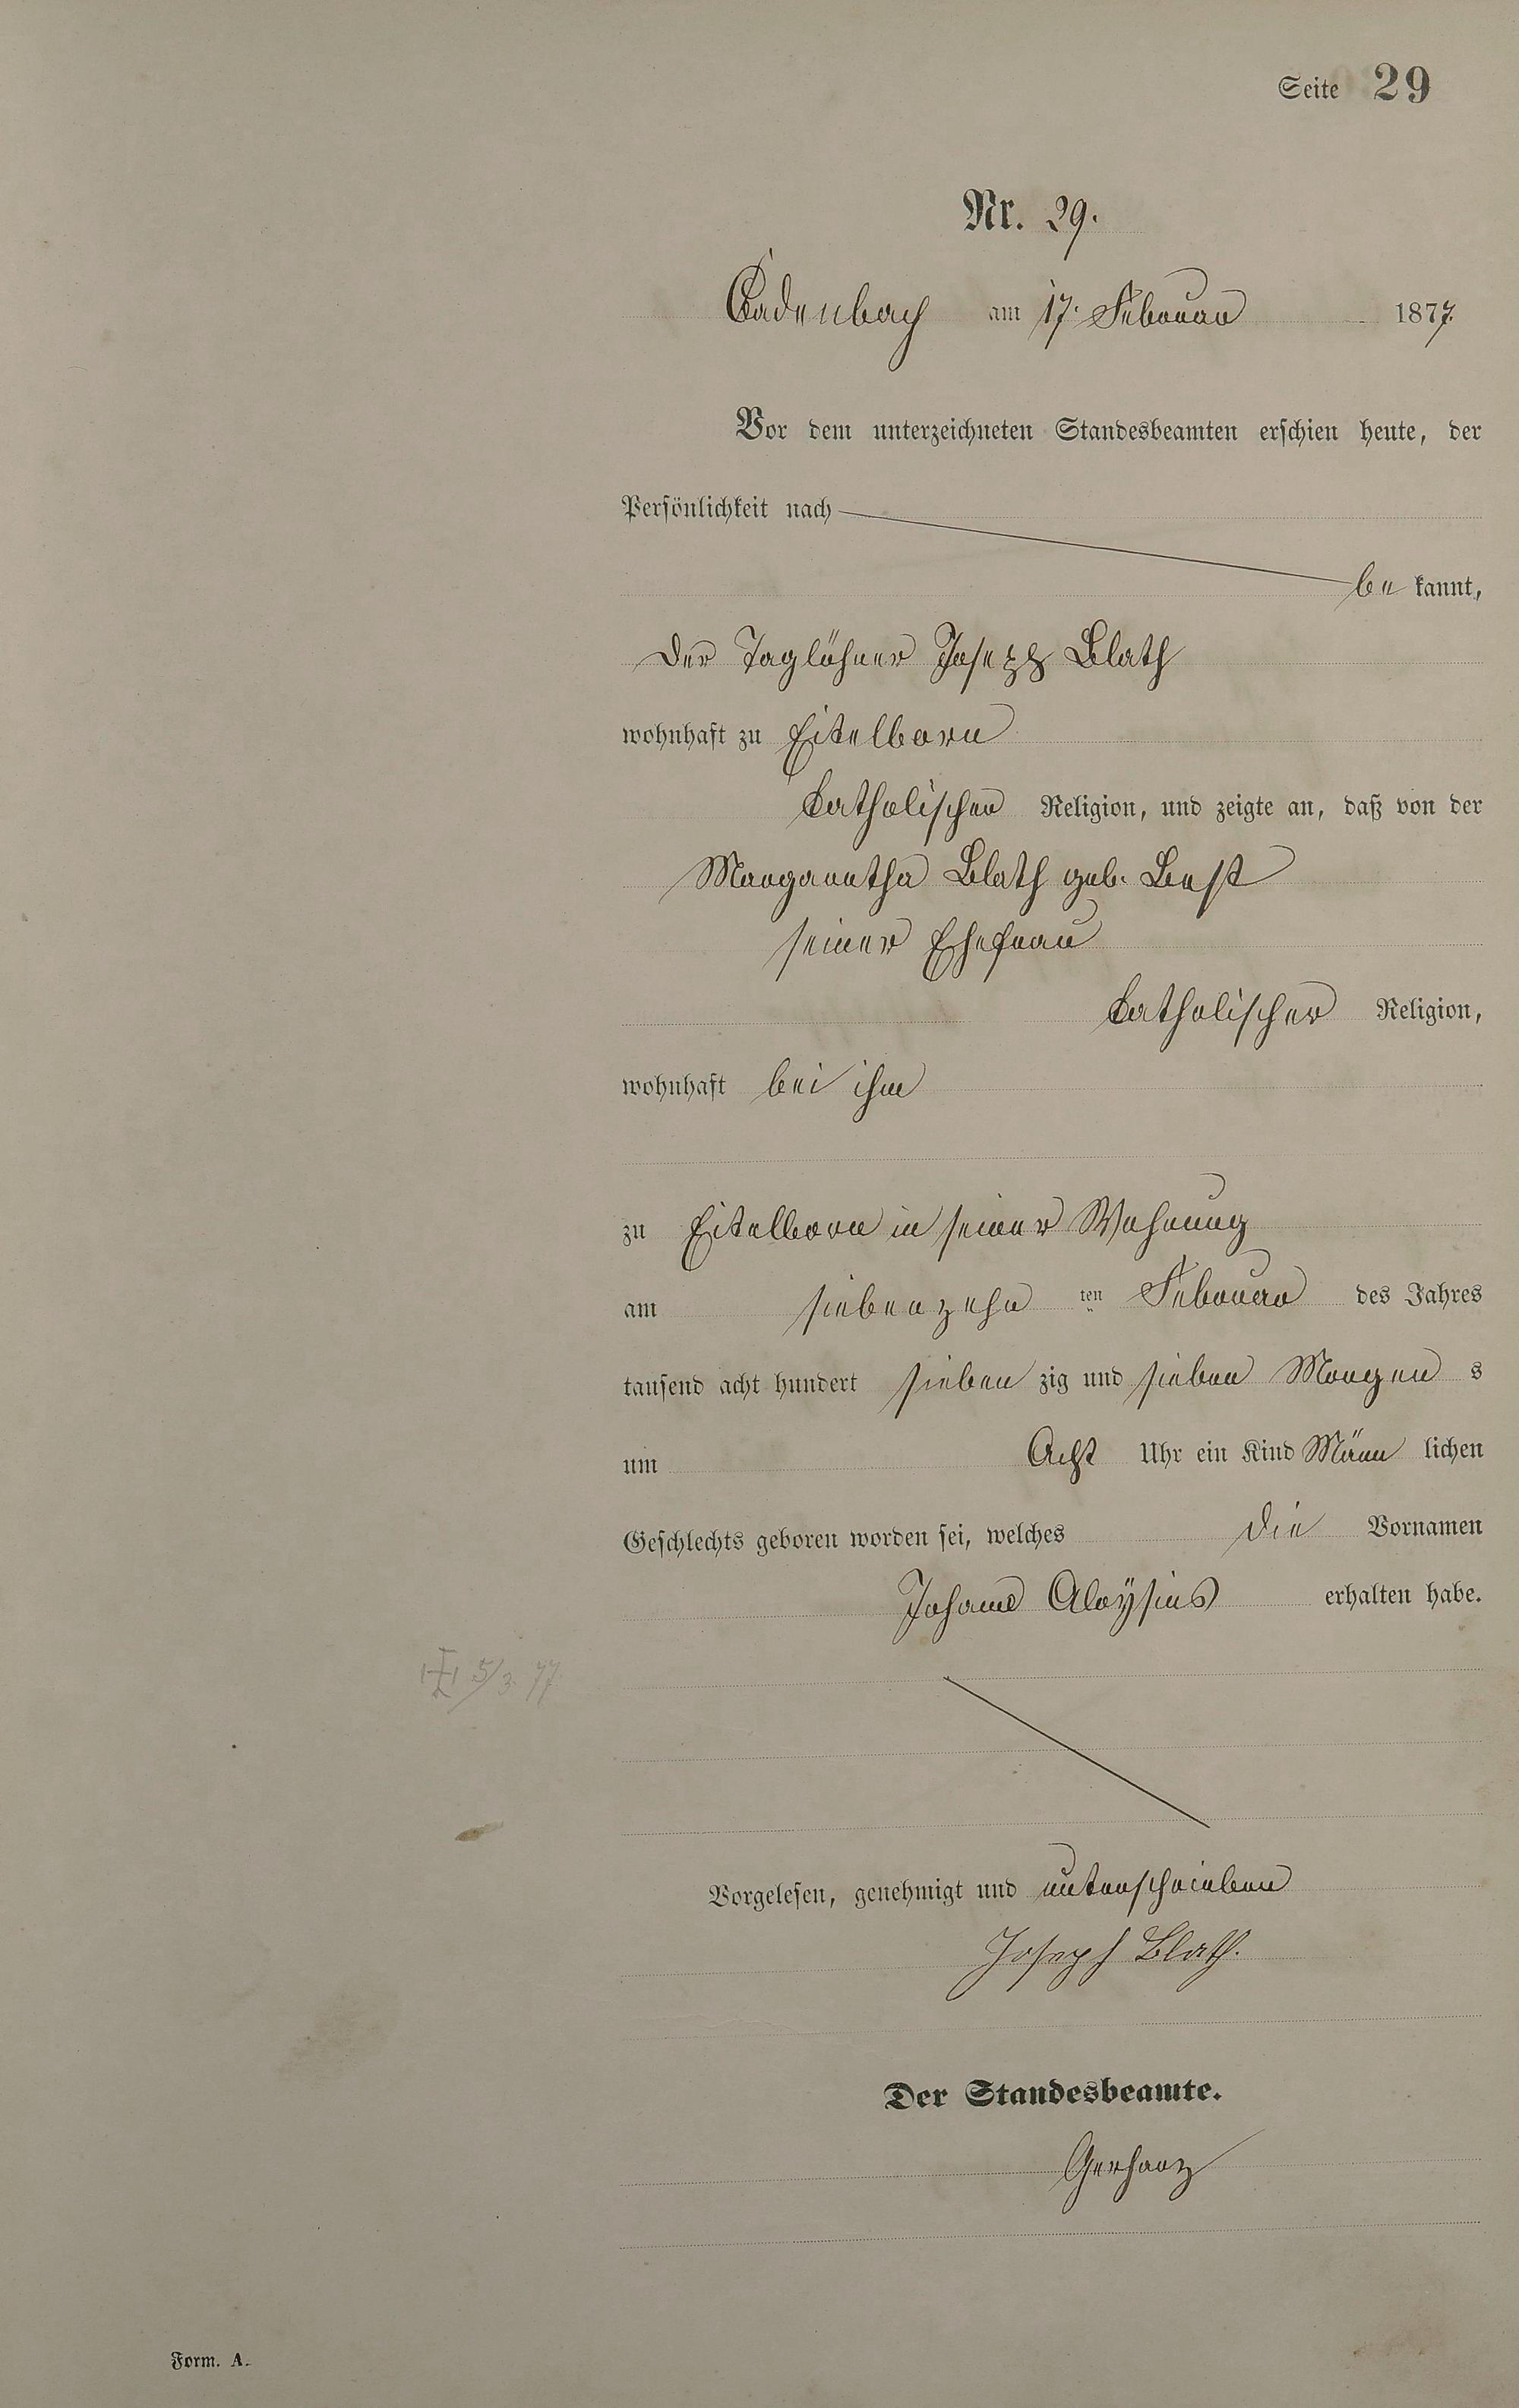 Seite 29
Nr. 29.
Cadenbach am 17. Februar 1877.
Vor dem unterzeichneten Standesbeamten erschien heute, der
Persönlichkeit nach
be kannt,
der Taglöhner Joseph Blath
wohnhaft zu Eitelborn
katholischer Religion, und zeigte an, daß von der
Margaretha Blath geb. Best
seiner Ehefrau
katholischer Religion,
wohnhaft bei ihm
zu Eitelborn in seiner Wohnung
am siebenzehn ten Februar des Jahres
tausend acht hundert sieben zig und sieben Morgen s
um Acht Uhr ein Kind Männ lichen
Geschlechts geboren worden sei, welches die Vornamen
Johann Aloÿsius erhalten habe.
5/3. 77.
Vorgelesen, genehmigt und unterschrieben
Joseph Blath.
Der Standesbeamte.
Gerharz
Form. A.